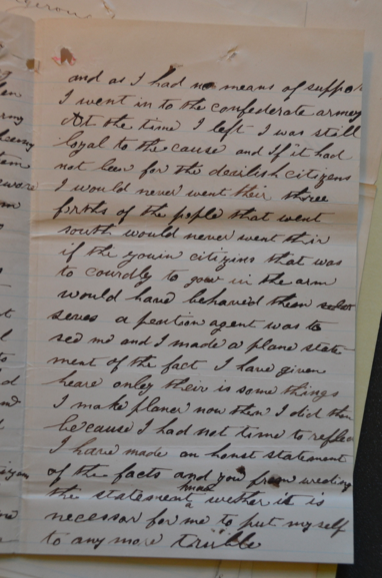 and as I had no means of suppor
I went in to the confederate army
At the time I left I was still
loyal to the cause and If it had
not been for the devilish citizens
I would never went their three
forths of the pople that went
south would never went their
if the union citizins that was
to courdly to gow in the arm
would have behaived them
serves a pention agent was to
see me and I made a plane state
ment of the fact I have given
heare onley their is some things
I make planer now then I did then
because I had not time to reflec
I have made an honst statement
of the facts and you from reeding
the statement wether it is
necessor for me to put my self
to any more truble